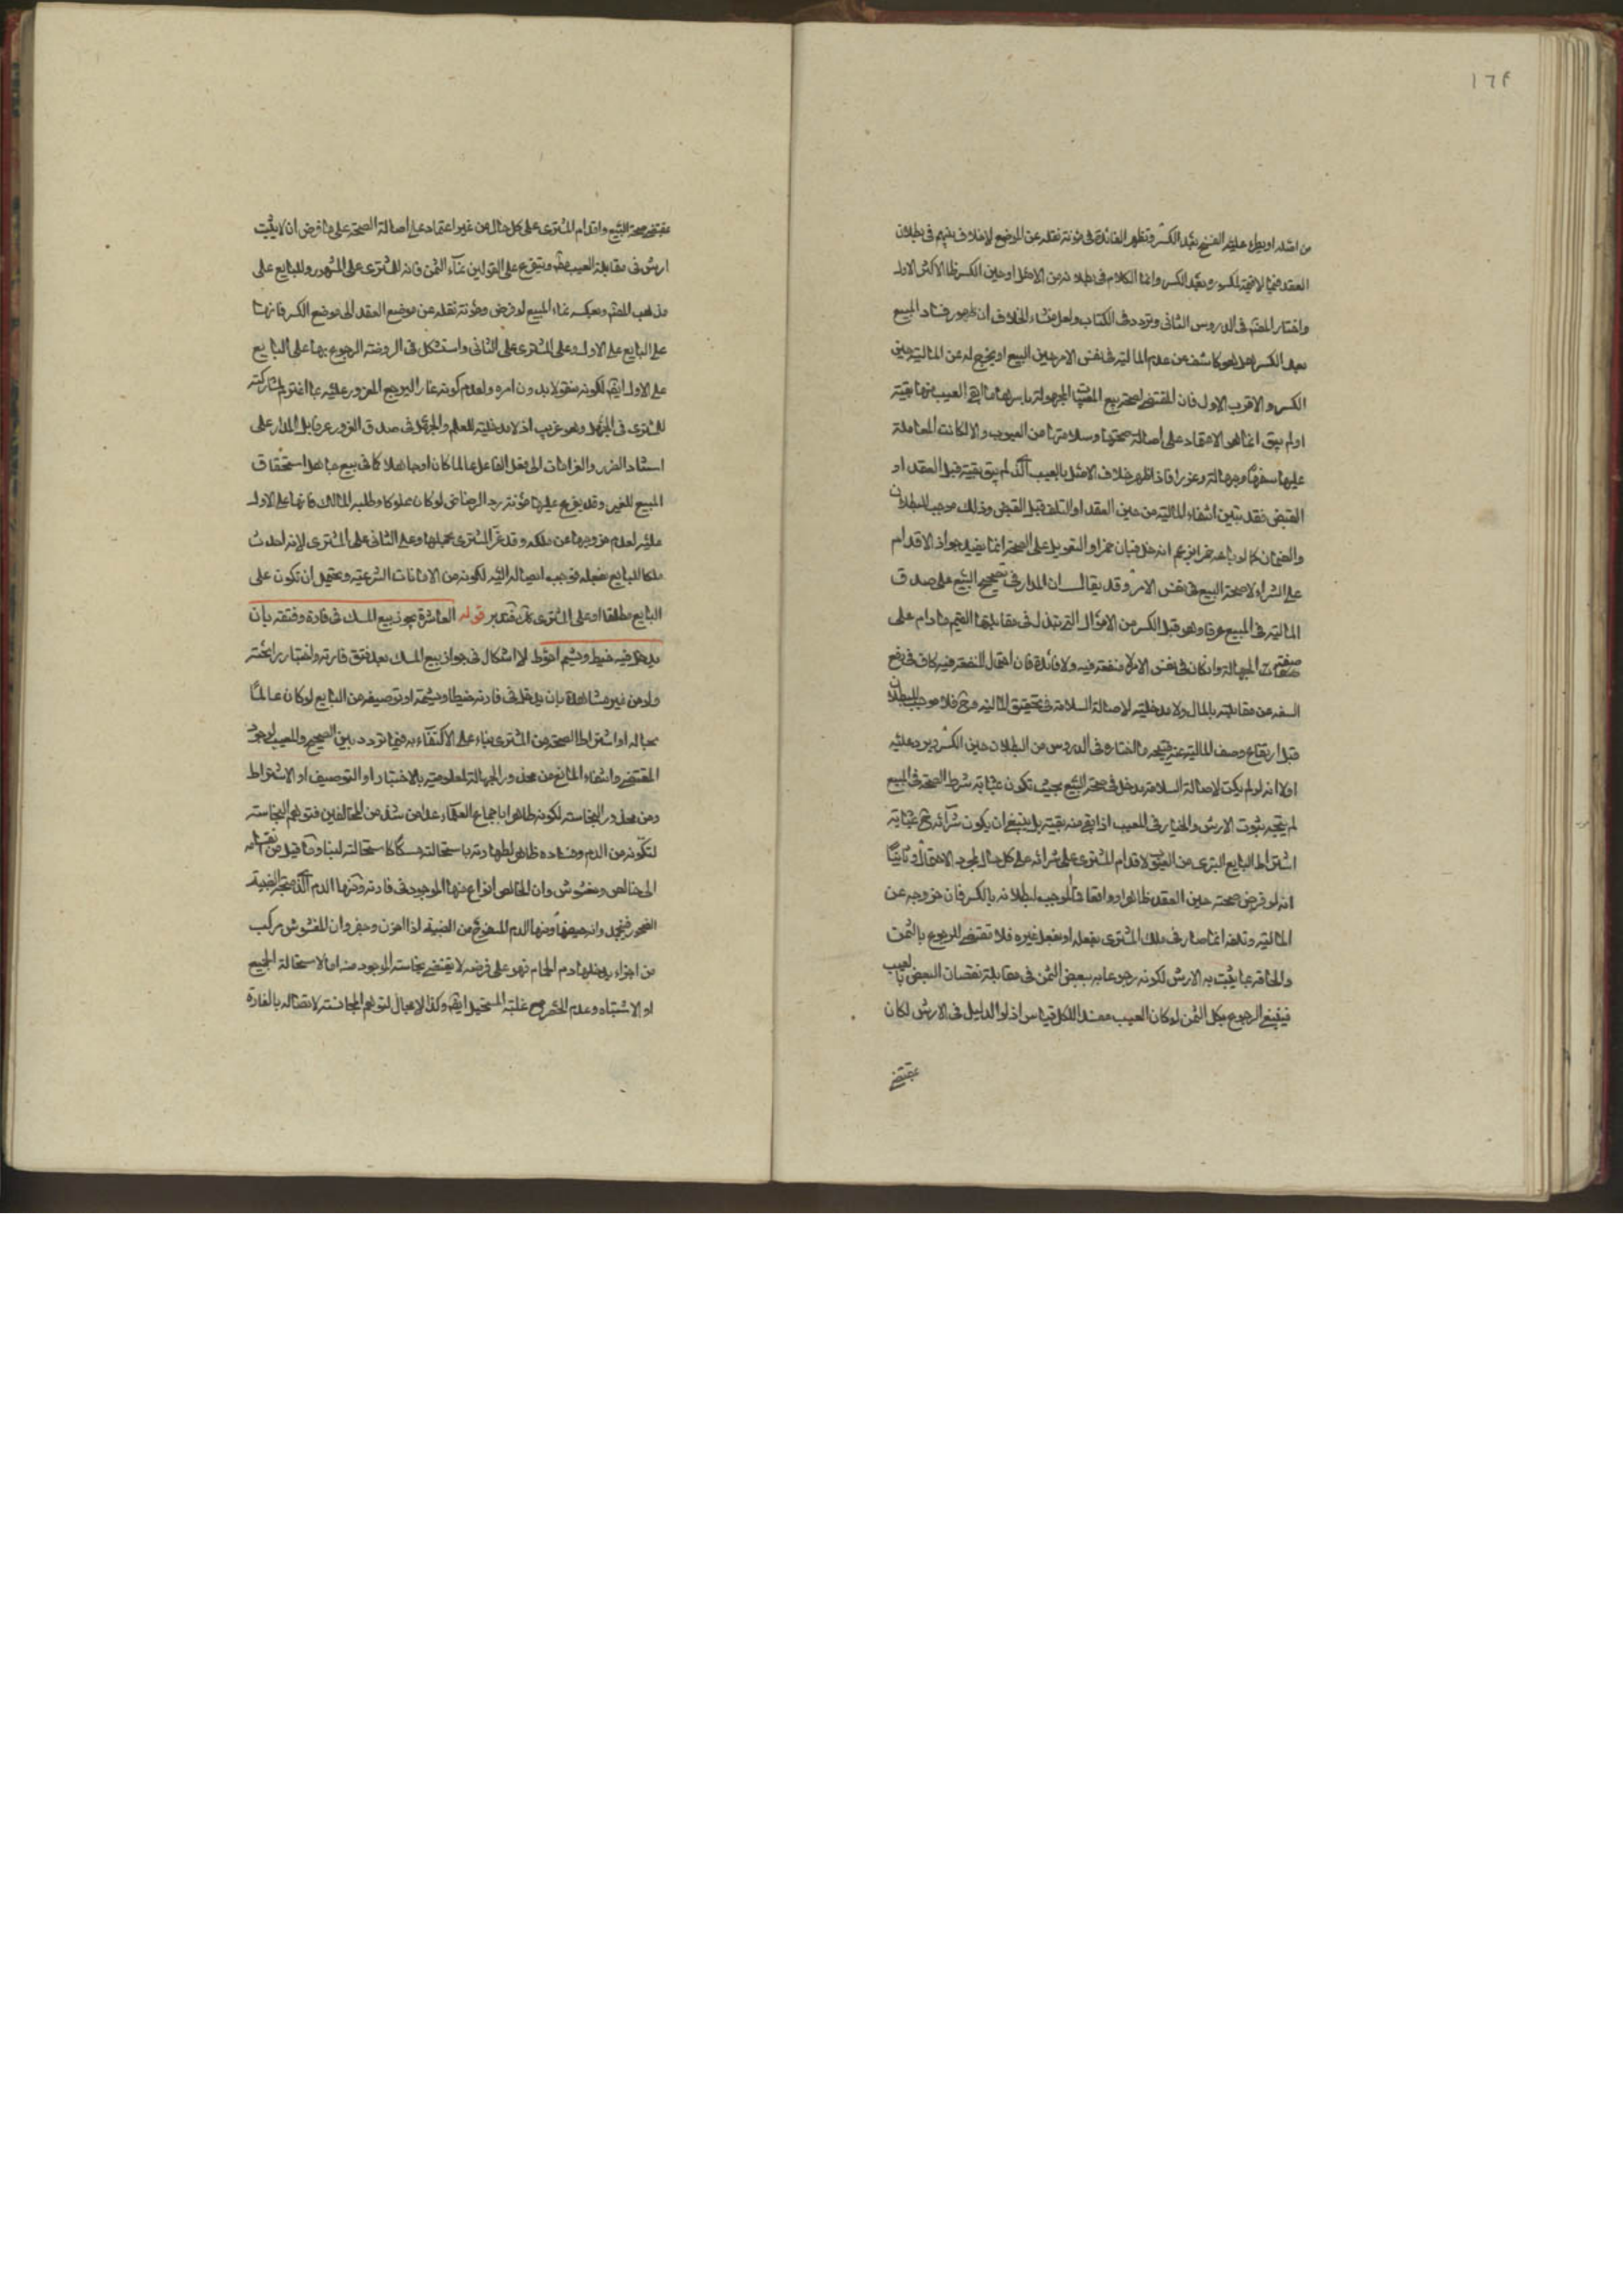 ١٦٩
من اصله او يطرء عليه الفسخ بعد الكسر وتظهر الفائدة فى مؤنة نقله عن الموضع لاخلاف بينهم فى بطلان
العقد فيما لا قيمة لمكسوره بعد الكسر وانما الكلام فى بطلانه من الاصل او حين الكسر ظاهر الاكثر الاول
واختار المصنف فى الدروس الثانى وتردد فى الكتاب ولعل منشاء الخلاف ان ظهور فساد المبيع
بعد الكسر هل هو كاشف عن عدم المالية فى نفس الامر حين البيع او يخرج له عن المالية حين
الكسر والاقرب الاول فان المقتضى لصحة بيع المجهولة باسرها ما ابقى العيب منها بقية
او لم يبق انما هو الاعتماد على اصالة صحتها وسلامتها من العيوب والا لكانت المعاملة
عليها سفها وجهالة وغررا فاذا ظهر خلاف الاصل بالعيب الذى لم يبق بقية قبل العقد او
القبض فقد تبين انتفاء المالية من حين العقد او التلف قبل القبض وذلك موجب للبطلان
والضمان كما لو باعه خمرا بزعم انه خل فبان خمرا والتعويل على الصحة انما يفيد جواز الاقدام
على الشراء لا صحة البيع فى نفس الامر وقد يقال ان المدار فى تصحيح البيع على صدق
المالية فى المبيع عرفا وهو قبل الكسر من الاموال التى تبذل فى مقابلتها القيم ما دام على
صفة الجهالة وان كان فى نفس الامر لا منفعة فيه ولا فائدة فان احتمال المنفعة فيه كاف فى رفع
السفه عن مقابلته بالمال ولا مدخلية لاصالة السلامة فى تحقيق المالية وح فلا موجب للبطلان
قبل ارتفاع وصف المالية عنه فيتجه ما اختاره فى الدروس من البطلان حين الكسر ويرد عليه
اولا انه لو لم يكن لاصالة السلامة مدخل فى صحة البيع بحيث تكون بمثابة شرط الصحة فى المبيع
لم يتجه ثبوت الارش والخيار فى المعيب اذا بقى منه بقية بل ينبغى ان يكون شرائه ح بمثابة
اشتراط البايع التبرى من العيوب لاقدام المشترى على شرائه على كل حال لمجرد الاحتمال وثانيا
انه لو فرض صحته حين العقد ظاهرا وواقعا فما الموجب لبطلانه بالكسر فان خروجه عن
المالية وتلفه انما صار فى ملك المشترى بفعله او بفعل غيره فلا تقتضى الرجوع بالثمن
والحاقه بما يثبت به الارش لكونه رجوعا به ببعض الثمن فى مقابلة نقصان البعض بالعيب
فينبغى الرجوع بكل الثمن لو كان العيب مفسدا للكل قياس اذ لولا الدليل فى الارش لكان
مقتضى
مقتضى صحة البيع واقدام المشترى على كل حال من غير اعتماد على اصالة الصحة على ما فرض ان لا يثبت
ارش فى مقابلة العيب ويتفرع على القولين نماء الثمن فانه للمشترى على المشهور وللبايع على
مذهب المصنف وبعكسه نماء المبيع لو فرض ومؤنة نقله عن موضع العقد الى موضع الكسر فانها
على البايع على الاول وعلى المشترى على الثانى واستشكل فى الروضة الرجوع بها على البايع
على الاول ايضا لكونه منقولا بدون امره ولعدم كونه غارا ليرجع المغرور عليه بما اغترم لمشاركته
للمشترى فى الجهل وهو غريب اذ لا مدخلية للعلم والجهل فى صدق الغرور عرفا بل المدار على
استناد الضرر والغرامات الى فعل الفاعل عالما كان او جاهلا كما فى بيع جاهل استحقاق
المبيع للغير وقد يفرع عليهما مؤنة رد الرضاض لو كان مملوكا وطلبه المالك فانها على الاول
عليه لعدم خروجها عن ملكه وقد غر المشترى بحملها وعلى الثانى على المشترى لانه احدث
ملكا للبايع بفعله فوجب ايصاله اليه لكونه من الامانات الشرعية ويحتمل ان تكون على
البايع مطلقا او على المشترى كك فتدبر قوله العاشرة يجوز بيع المسك فى فارة وفتقه بان
يدخل فيه خيط ويشم احوط لا اشكال فى جواز بيع المسك بعد فتق فارته واختبار رائحته
ولو من غير مشاهدة بان يدخل فى فارته خيطا ويشمه او توصيفه من البايع لو كان عالما
بحاله او اشتراط الصحة من المشترى بناء على الاكتفاء به فيما تردد بين الصحيح والمعيب لوجود
المقتضى وانتفاء المانع من محذور الجهالة لمعلوميته بالاختبار او التوصيف او الاشتراط
ومن محذور النجاسة لكونه طاهرا باجماع العلماء عدا من شذ من المخالفين فتوهم النجاسة
لتكونه من الدم وفساده ظاهر لطهارته باستحالته مسكا كاستحالته لبنا وما قيل من انقسامه
الى خالص ومغشوش وان الخالص انواع منها الموجود فى فارته ومنها الدم الذى
الفجور فيجمد وانه حيضها ومنها الدم المسفوح من الظبية اذا اهزن وحفر وان المغشوش مركب
من اجزاء يدخلها دم الحمام فهو على فرضه لا يقتضى نجاسة الموجود منه اما لاستحالة الجميع
او الاشتباه وعدم الحصر مع غلبة المستحيل ايضا وكذا لا مجال لتوهم النجاسة لاتصاله بالفارة